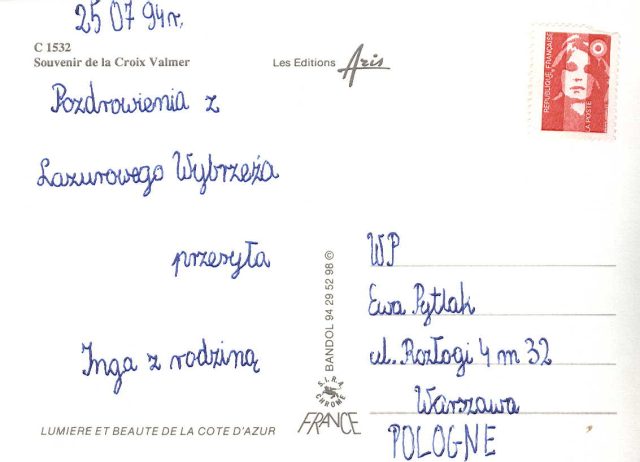 25 07 94r.
C 1532
Souvenir de la Croix Valmer
Les Editions Aris
RÉPUBLIQUE FRANÇAISE
LA POSTE
Pozdrowienia z
Lazurowego Wybrzeża
przesyła
Inga z rodziną
BANDOL 94 29 52 98 ©
S.L.R.A
CHROME
FRANCE
LUMIERE ET BEAUTE DE LA COTE D'AZUR
WP
Ewa Pytlak
ul. Rozłogi 4 m 32
Warszawa
POLOGNE